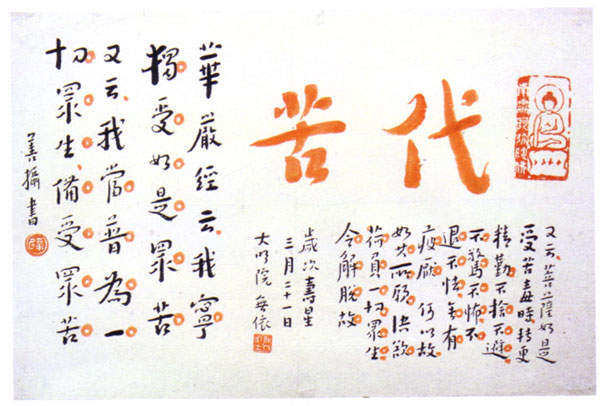 代苦
華嚴經云我寧
獨受如是眾苦
又云我當普為一
切眾生備受眾苦
善攝書
又云菩薩如是
受苦毒時轉更
精勤不捨不避
不驚不怖不
退不怯無有
疲厭何以故
如其所願決欲
荷負一切眾生
令解脫故
歲次壽星
三月二十一日
大明院無依